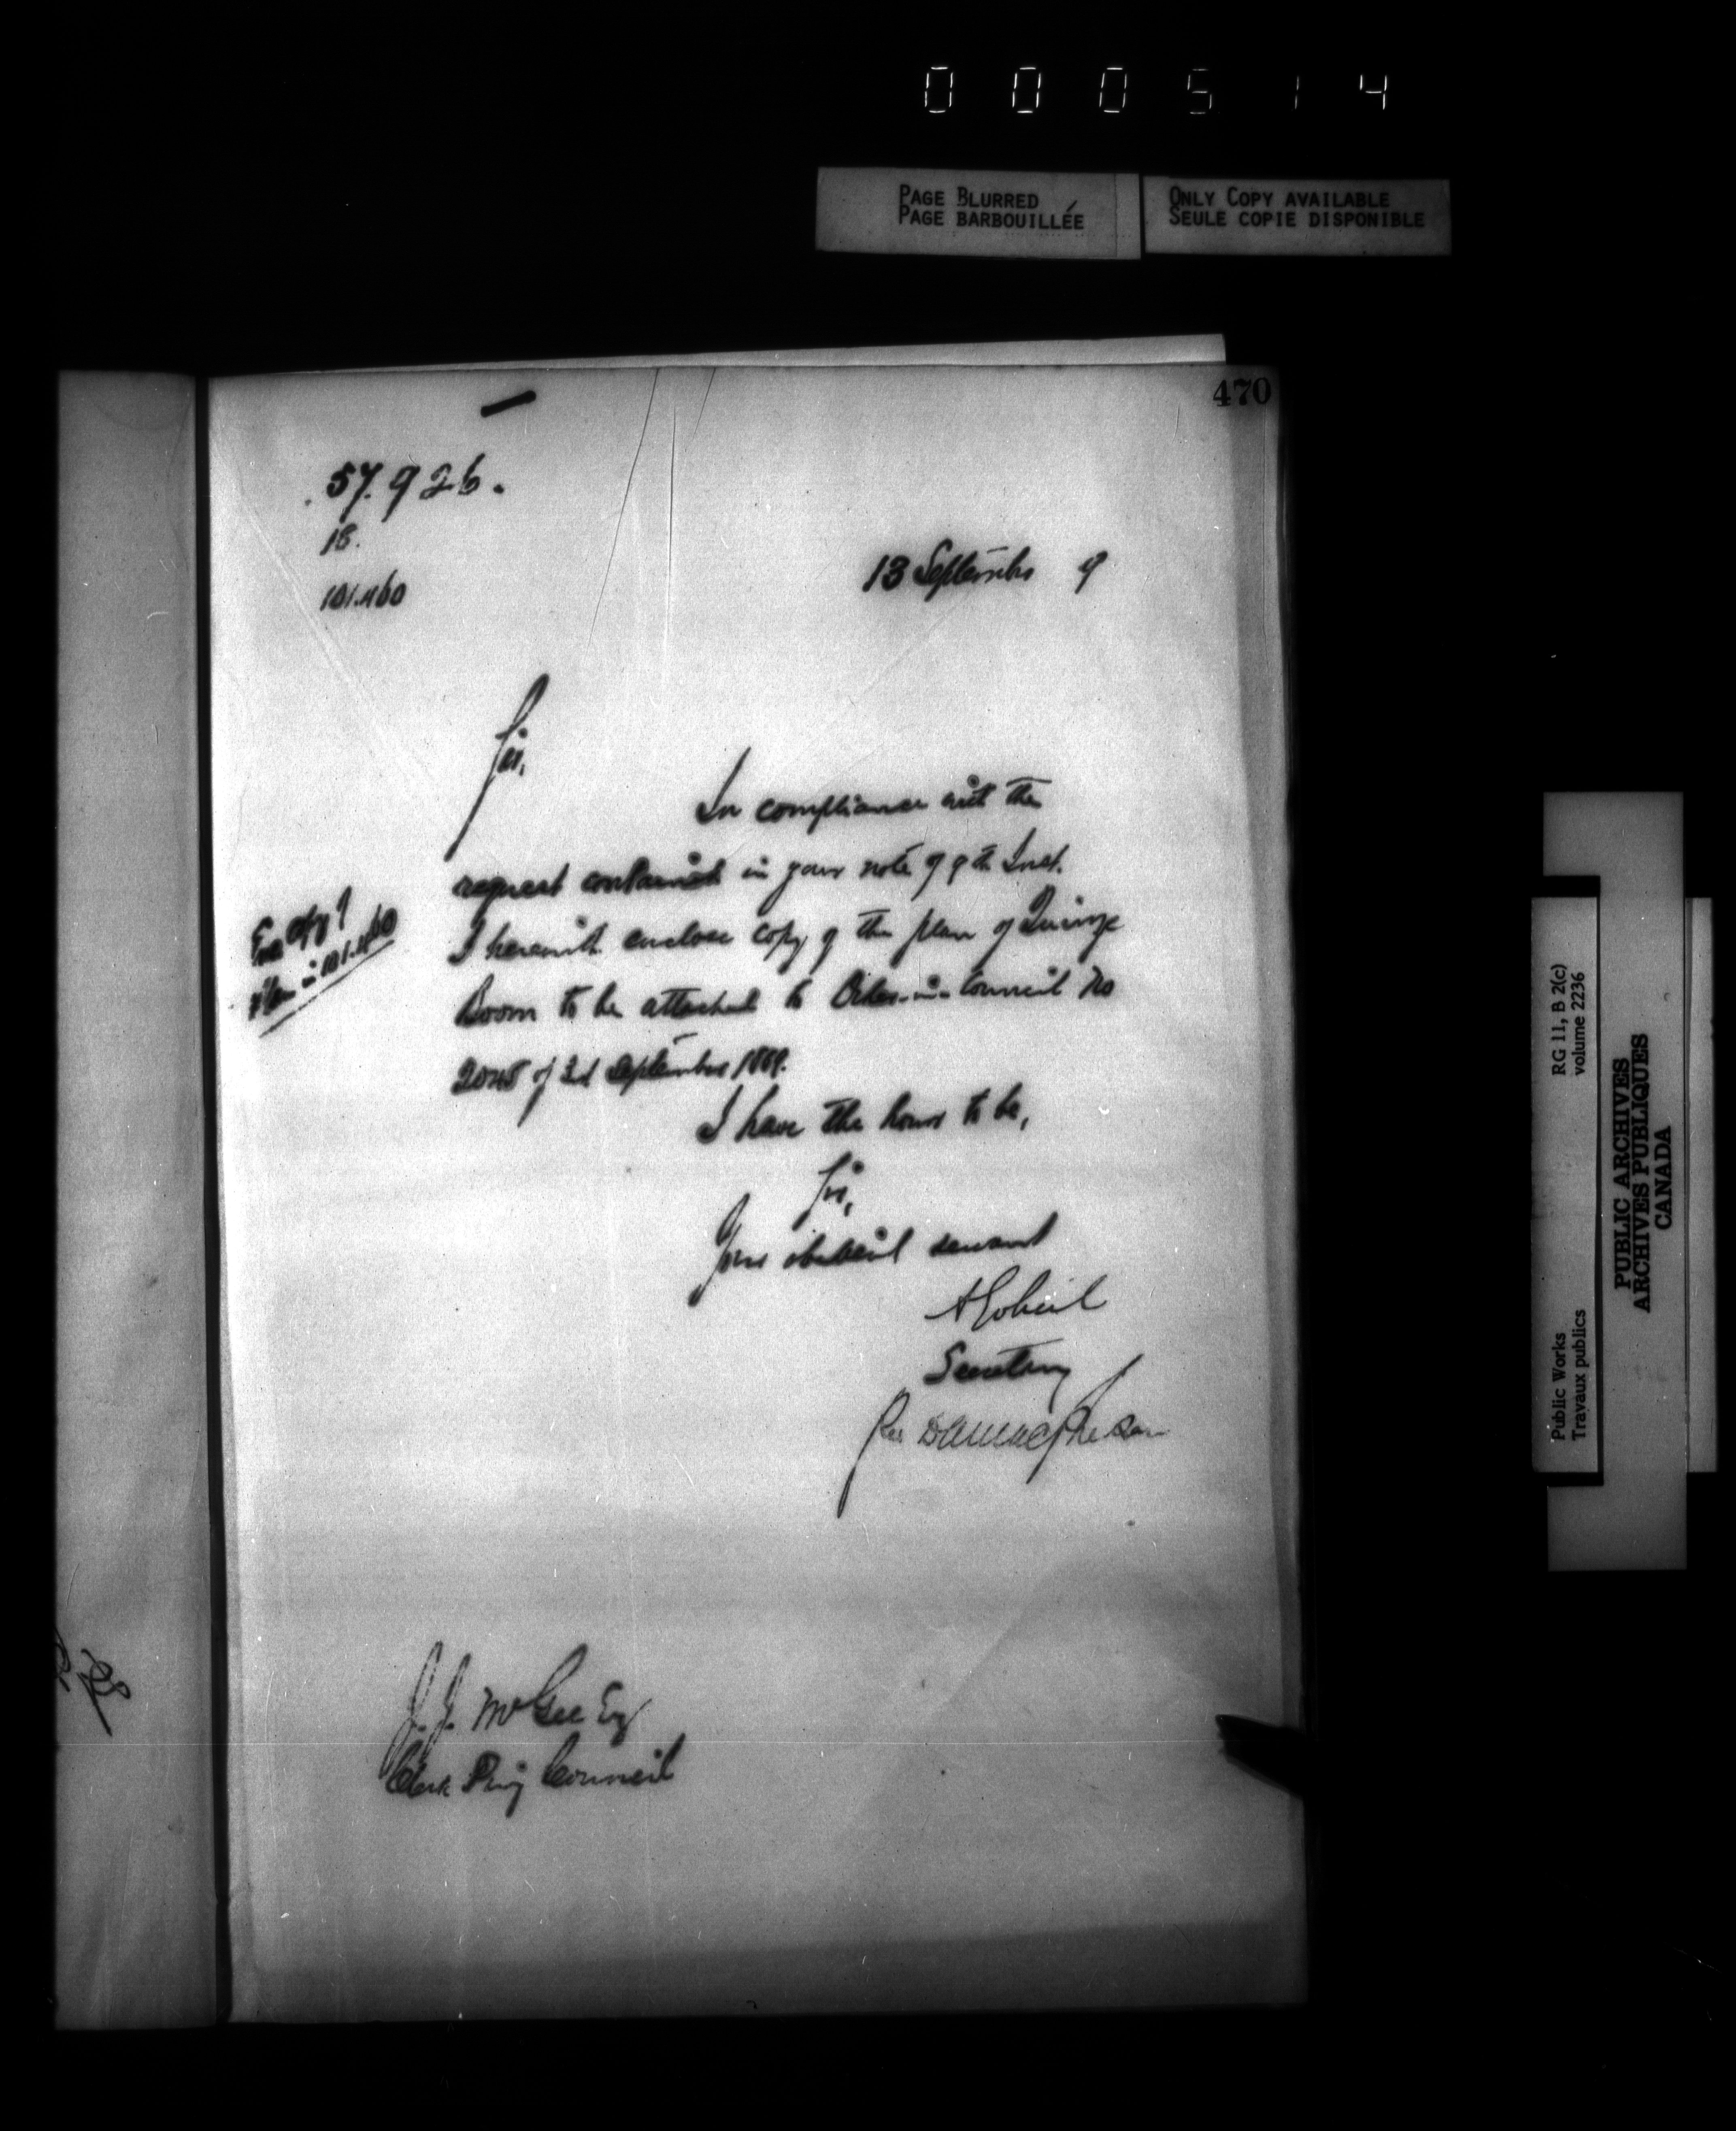 000514
PAGE BLURRED
PAGE BARBOUILLÉE
ONLY COPY AVAILABLE
SEULE COPIE DISPONIBLE
470
57.926.
18.
101.460
13 September 9
Sir,
In compliance with the
request contained in your note of 9th Inst.
I herewith enclose copy of the plan of Quinze
Boom to be attached to Order-in-Council No
of 3d September 1889.
Enc copy of
plan in 101.460
I have the honor to be,
Sir,
Your obedient servant
A Gobeil
Secretary
Per D A Macpherson
J. J. McGee Esq
Clerk Privy Council
Public Works
Travaux publics
RG 11, B 2(c)
volume 2236
PUBLIC ARCHIVES
ARCHIVES PUBLIQUES
CANADA